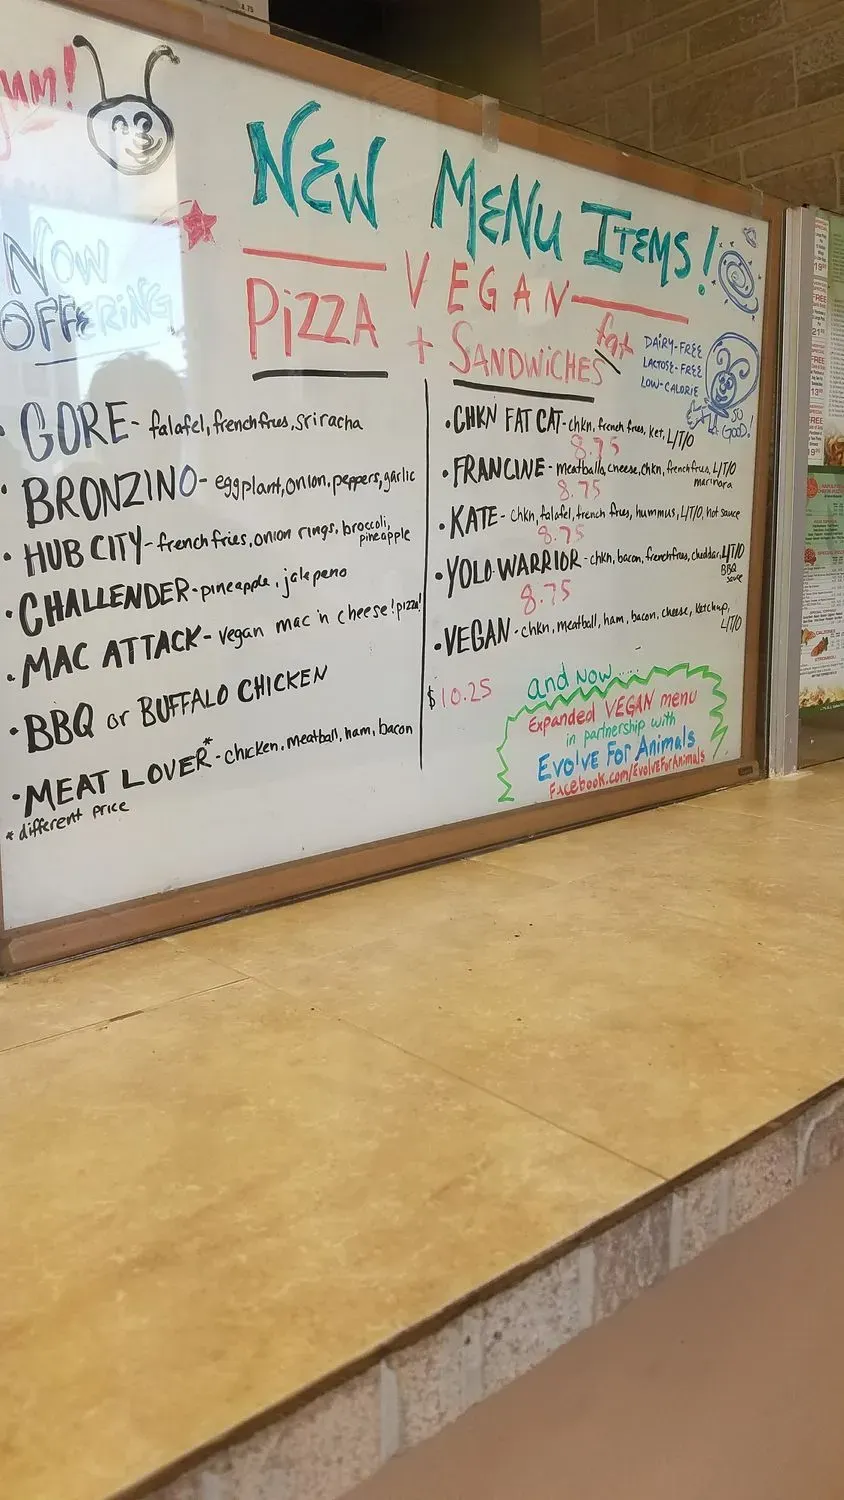 um!
NEW MENU ITEMS!
NOW
OFFERING
VEGAN
PiZZA + fat SANDWiCHES
DAIRY-FREE
LACTOSE-FREE
LOW-CALORIE
SO
GOOD!
• GORE - falafel, french fries, sriracha
• BRONZINO - eggplant, onion, peppers, garlic
• HUB CITY - french fries, onion rings, broccoli,
pineapple
• CHALLENDER - pineapple, jalepeno
• MAC ATTACK - vegan mac 'n cheese! pizza!
• BBQ or BUFFALO CHICKEN
• MEAT LOVER* - chicken, meatball, ham, bacon
* different price
• CHKN FAT CAT - chkn, french fries, ket, L/T/O
8.75
• FRANCINE - meatballs, cheese, chkn, french fries, L/T/O
marinara
8.75
• KATE - chkn, falafel, french fries, hummus, L/T/O, hot sauce
8.75
• YOLO WARRIOR - chkn, bacon, french fries, cheddar, L/T/O
BBQ
sauce
8.75
• VEGAN - chkn, meatball, ham, bacon, cheese, ketchup,
L/T/O
$10.25
and now.....
Expanded VEGAN menu
in partnership with
Evolve For Animals
Facebook.com/EvolveForAnimals